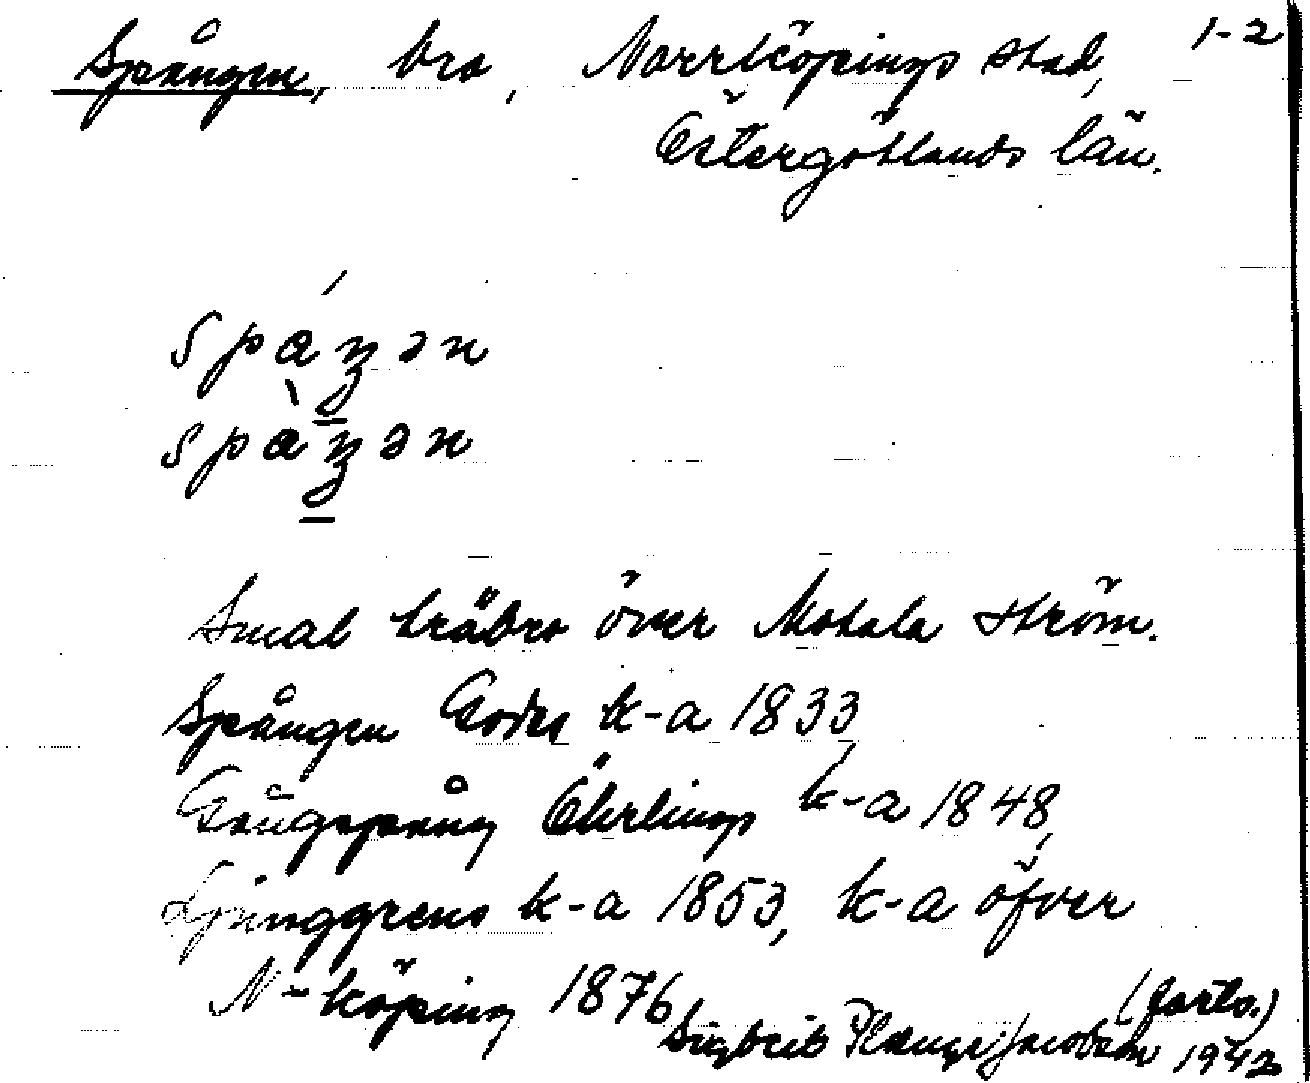 1-2
Spången, bro, Norrköpings stad,
Östergötlands län.
spáŋən
spàŋən
Smal träbro över Motala ström.
Spången Godes k-a 1833,
Gångspång Öhrlings k-a 1848,
Ljunggrens k-a 1853, k-a öfver
N-köping 1876
(forts.)
Sigbrit Plænge Jacobson 1942